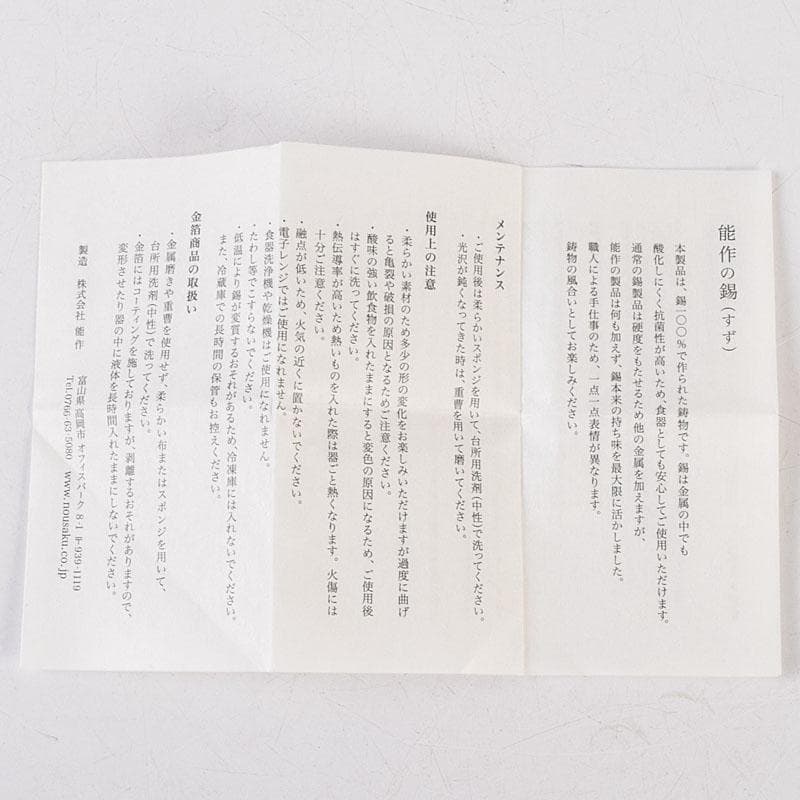 能作の錫(すず)
本製品は、錫一〇〇%で作られた鋳物です。錫は金属の中でも
酸化しにくく抗菌性が高いため、食器としても安心してご使用いただけます。
通常の錫製品は硬度をもたせるため他の金属を加えますが、
能作の製品は何も加えず、錫本来の持ち味を最大限に活かしました。
職人による手仕事のため、一点一点表情が異なります。
鋳物の風合いとしてお楽しみください。
メンテナンス
・ご使用後は柔らかいスポンジを用いて、台所用洗剤(中性)で洗ってください。
・光沢が鈍くなってきた時は、重曹を用いて磨いてください。
使用上の注意
・柔らかい素材のため多少の形の変化をお楽しみいただけますが過度に曲げ
ると亀裂や破損の原因となるためご注意ください。
・酸味の強い飲食物を入れたままにすると変色の原因になるため、ご使用後
はすぐに洗ってください。
・熱伝導率が高いため熱いものを入れた際は器ごと熱くなります。火傷には
十分ご注意ください。
・融点が低いため、火気の近くに置かないでください。
・電子レンジではご使用になれません。
・食器洗浄機や乾燥機はご使用になれません。
・たわし等でこすらないでください。
・低温により錫が変質するおそれがあるため、冷凍庫には入れないでください。
また、冷蔵庫での長時間の保管もお控えください。
金箔商品の取扱い
・金属磨きや重曹を使用せず、柔らかい布またはスポンジを用いて、
台所用洗剤(中性)で洗ってください。
・金箔にはコーティングを施しておりますが、剥離するおそれがありますので、
変形させたり器の中に液体を長時間入れたままにしないでください。
製造 株式会社 能作 富山県高岡市オフィスパーク8-1 〒939-1119
Tel.0766-63-5080 www.nousaku.co.jp